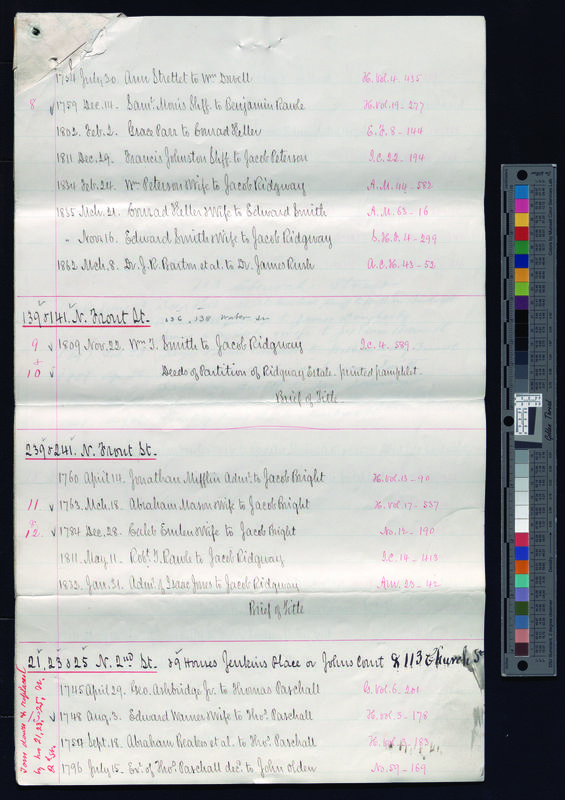 1754 July 30. Ann Strettet to Wm Duvell H. Vol. 4 - 435
8 1759 Dec. 14. Saml. Moris Shff. to Benjamin Rawle H. Vol. 19 - 277
1802. Feb. 2. Grace Parr to Conrad Heller E.F. 8 - 144
1811 Dec. 29. Francis Johnston Shff. to Jacob Peterson I.C. 22. 194
1834 Feb. 24. Wm Peterson & Wife to Jacob Ridgway A.M. 44 - 582
1835 Mch. 21. Conrad Heller & Wife to Edward Smith A.M. 63 - 16
" Nov. 16. Edward Smith & Wife to Jacob Ridgway 4 - 299
1862 Mch. 8. Dr. J. R. Barton et al. to Dr. James Rush A.C.H. 43 - 52
139 & 141. N. Front St. 136, 138 Water St
9 1809 Nov. 22. Wm. J. Smith to Jacob Ridgway I.C. 4. 589.
& 10 Deeds of Partition of Ridgway Estate. printed pamphlet.
Brief of Title
239 & 241. N. Front St.
1760 April 14. Jonathan Mifflin Admr. to Jacob Bright H. Vol. 13 - 90
11 1763. Mch. 18. Abraham Mason & Wife to Jacob Bright H. Vol. 17 - 537
& 12. 1784 Dec. 28. Caleb Emlen & Wife to Jacob Bright No. 12 - 190
1811. May. 11. Robt. J. Rawle to Jacob Ridgway I.C. 14 - 413
1832. Jan. 31. Admr. of Isaac Jones to Jacob Ridgway A.M. 23 - 42
Brief of Title
21, 23 & 25 N. 2nd St. & 9 Homes Jenkins Place or Johns Court & 113 Church St
1745 April 29. Geo. Ashbridge Jr. to Thomas Paschall G. Vol. 6. 201
1748 Aug. 3. Edward Warner & Wife to Thos. Paschall H. Vol. 3 - 178
1754 Sept. 18. Abraham Reakes et al. to Thos. Paschall H. Vol. 183
1796 July 15. Exr. of Thos. Paschall decd. to John Olden No. 59 - 169
Torn down & replaced
by nos 21, 23 & 25, N.
2 St.